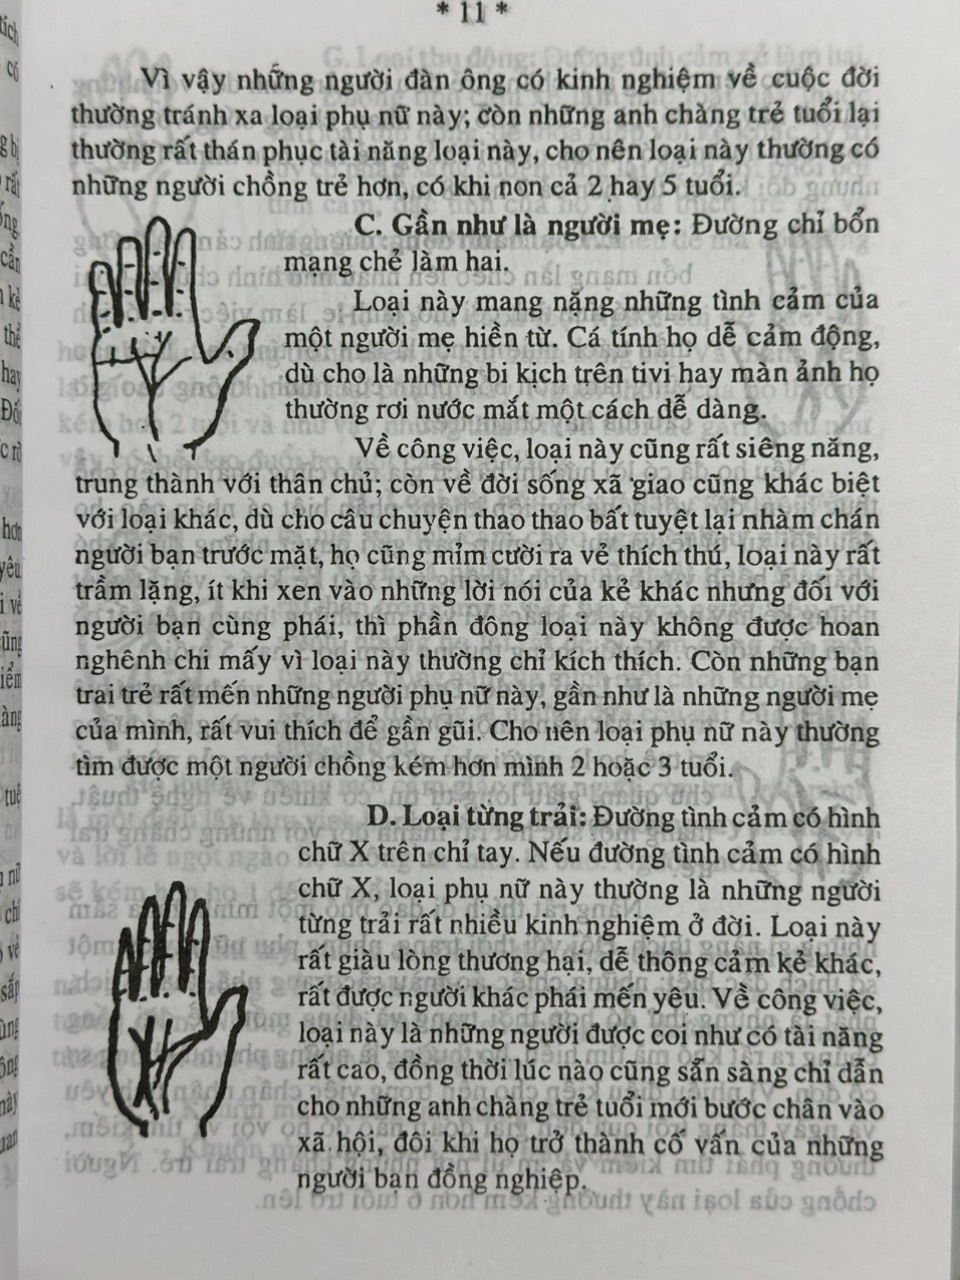 * 11 *
Vì vậy những người đàn ông có kinh nghiệm về cuộc đời
thường tránh xa loại phụ nữ này; còn những anh chàng trẻ tuổi lại
thường rất thán phục tài năng loại này, cho nên loại này thường có
những người chồng trẻ hơn, có khi non cả 2 hay 5 tuổi.
C. Gần như là người mẹ: Đường chỉ bổn
mạng chẻ làm hai.
Loại này mang nặng những tình cảm của
một người mẹ hiền từ. Cá tính họ dễ cảm động,
dù cho là những bi kịch trên tivi hay màn ảnh họ
thường rơi nước mắt một cách dễ dàng.
Về công việc, loại này cũng rất siêng năng,
trung thành với thân chủ; còn về đời sống xã giao cũng khác biệt
với loại khác, dù cho câu chuyện thao thao bất tuyệt lại nhàm chán
người bạn trước mặt, họ cũng mỉm cười ra vẻ thích thú, loại này rất
trầm lặng, ít khi xen vào những lời nói của kẻ khác nhưng đối với
người bạn cùng phái, thì phần đông loại này không được hoan
nghênh chi mấy vì loại này thường chỉ kích thích. Còn những bạn
trai trẻ rất mến những người phụ nữ này, gần như là những người mẹ
của mình, rất vui thích để gần gũi. Cho nên loại phụ nữ này thường
tìm được một người chồng kém hơn mình 2 hoặc 3 tuổi.
D. Loại từng trải: Đường tình cảm có hình
chữ X trên chỉ tay. Nếu đường tình cảm có hình
chữ X, loại phụ nữ này thường là những người
từng trải rất nhiều kinh nghiệm ở đời. Loại này
rất giàu lòng thương hại, dễ thông cảm kẻ khác,
rất được người khác phái mến yêu. Về công việc,
loại này là những người được coi như có tài năng
rất cao, đồng thời lúc nào cũng sẵn sàng chỉ dẫn
cho những anh chàng trẻ tuổi mới bước chân vào
xã hội, đôi khi họ trở thành cố vấn của những
người bạn đồng nghiệp.